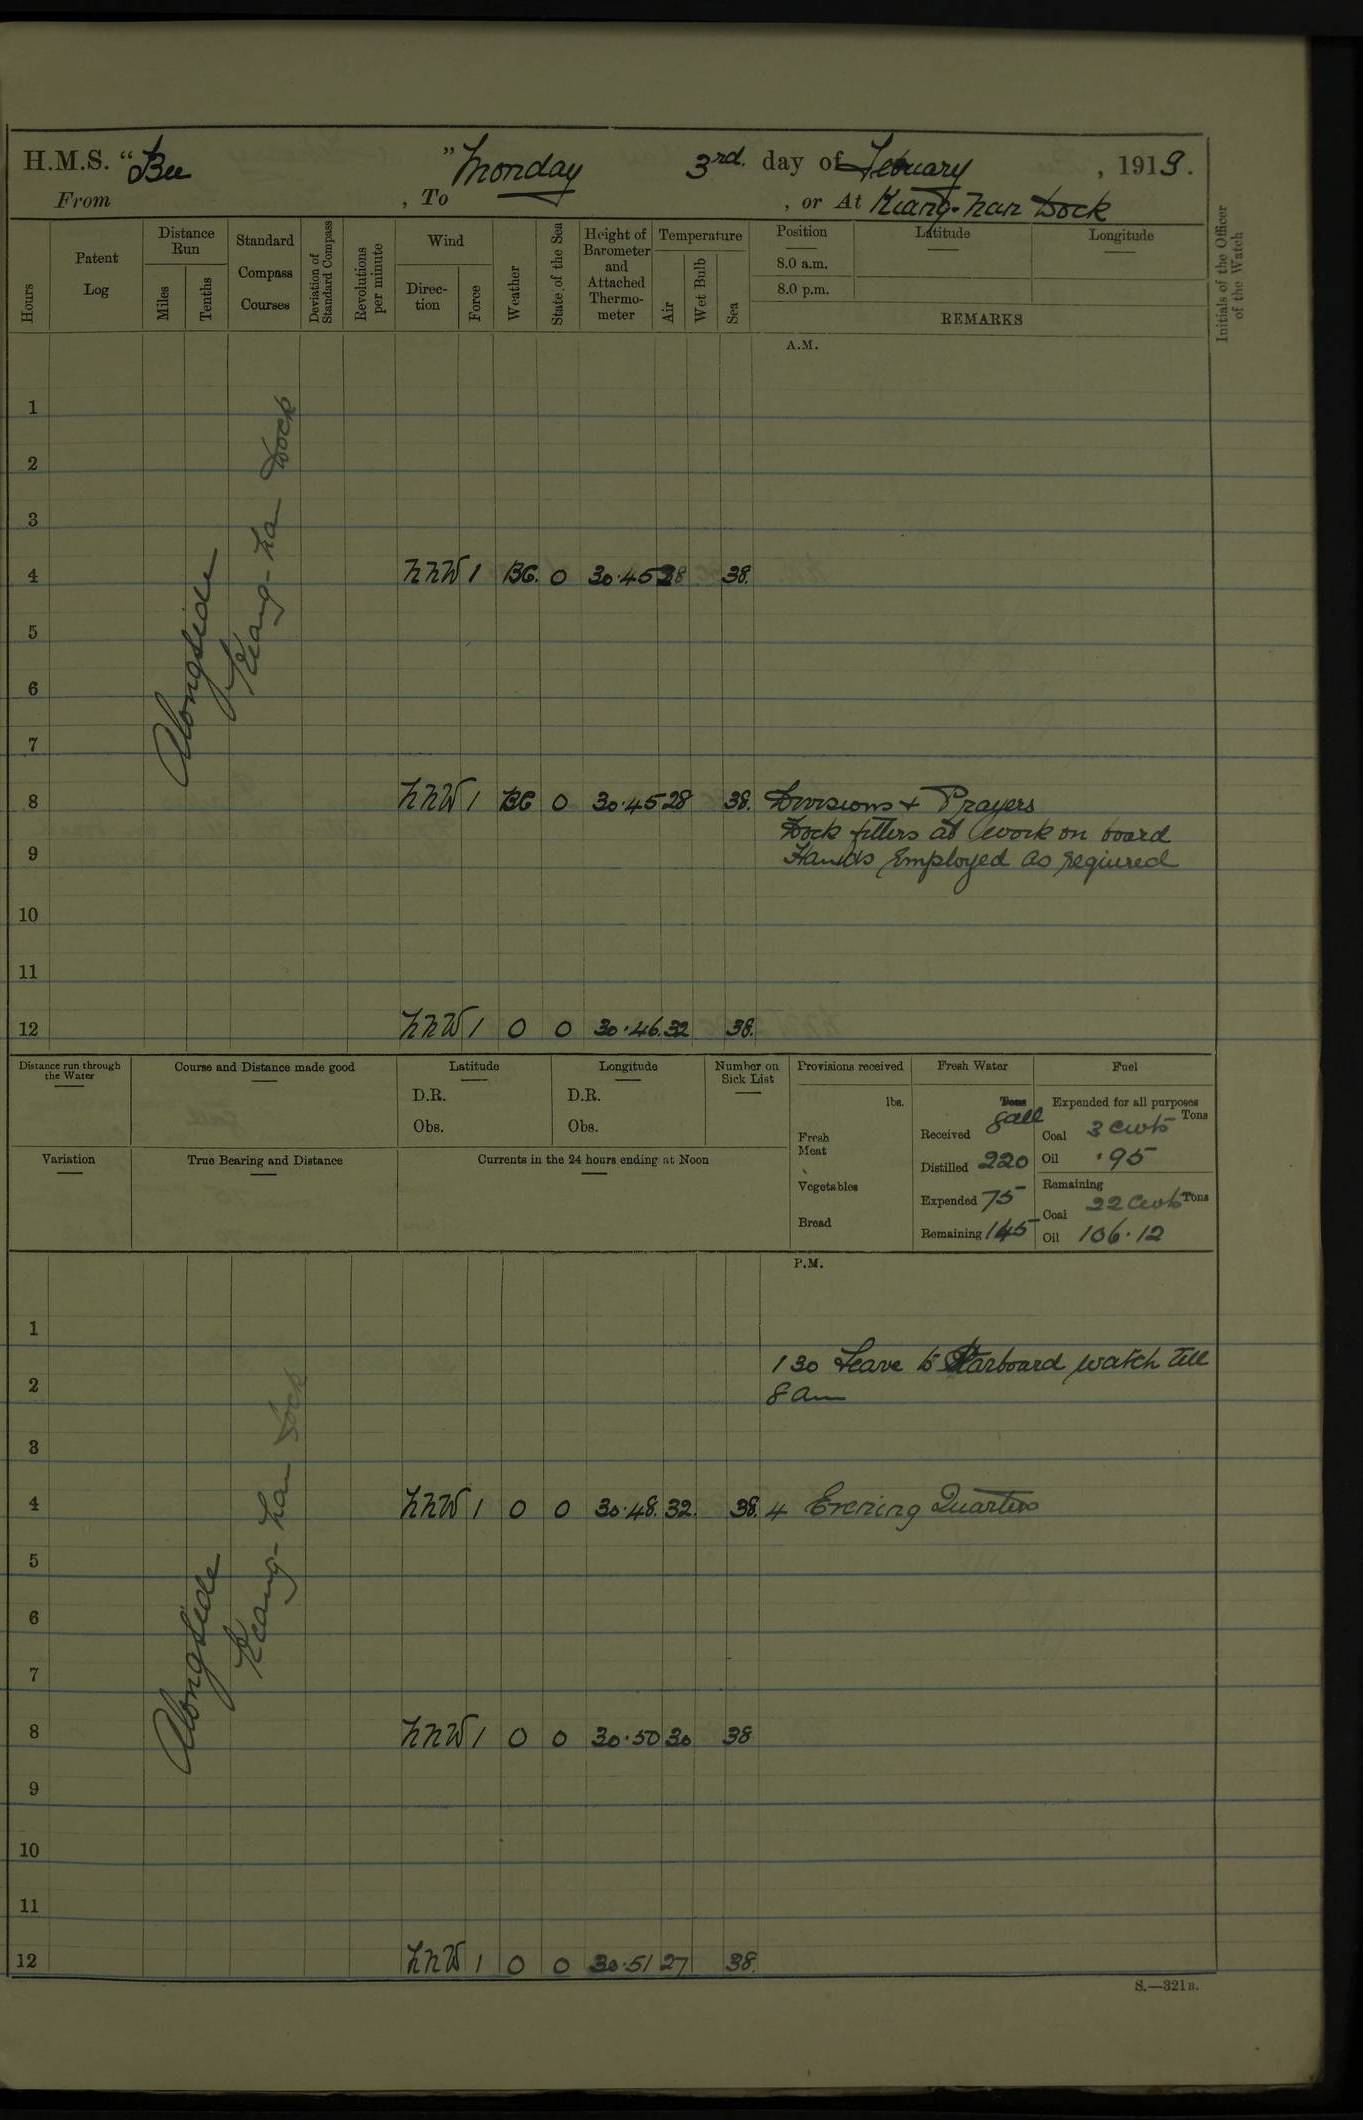 H.M.S. "Bee" Monday 3rd. day of Febuary, 1919.
From , To , or At Kiang-nan Dock
Hours
Patent Log
Distance Run
Miles
Tenths
Standard Compass Courses
Deviation of Standard Compass
Revolutions per minute
Wind
Direc-tion
Force
Weather
State of the Sea
Height of Barometer and Attached Thermo-meter
Temperature
Air
Wet Bulb
Sea
Position
8.0 a.m.
8.0 p.m.
Latitude
Longitude
REMARKS
Initials of the Officer of the Watch
A.M.
Alongside
Kiang-na Dock
1
2
3
4 NNW 1 BC. 0 30.45 28 38.
5
6
7
8 NNW 1 BC 0 30.45 28 38. Divisions + Prayers
Dock fitters at work on board
9 Hands Employed as reqiured
10
11
12 NNW 1 0 0 30.46. 32 38.
Distance run through the Water
Course and Distance made good
Latitude
D.R.
Obs.
Longitude
D.R.
Obs.
Number on Sick List
Variation
True Bearing and Distance
Currents in the 24 hours ending at Noon
Provisions received
lbs.
Fresh Meat
Vegetables
Bread
Fresh Water
Tons gall
Received
Distilled 220
Expended 75
Remaining 145
Fuel
Expended for all purposes
Tons
Coal 3 cwts
Oil .95
Remaining
Coal 22 cwts Tons
Oil 106.12
P.M.
Alongside
Kiang-nan Dock
1
1 30 Leave to Starboard watch till
2 8 am
3
4 NNW 1 0 0 30.48. 32. 38. 4 Evening Quarters
5
6
7
8 NNW 1 0 0 30.50 30 38
9
10
11
12 NNW 1 0 0 30.51 27 38.
S.—321B.